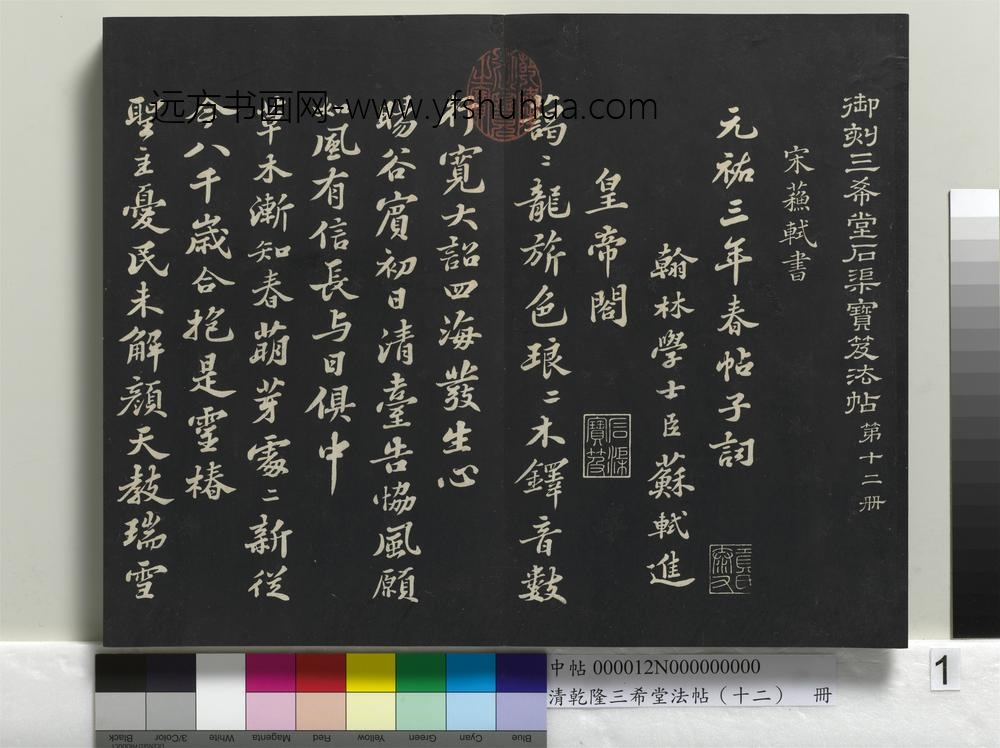 御刻三希堂石渠寶笈法帖第十二冊
宋蘓軾書
元祐三年春帖子詞
翰林學士臣蘇軾進
皇帝閣
藹〻龍旂色琅〻木鐸音數
行寬大詔四海發生心
暘谷賓初日清臺告協風願
如風有信長与日俱中
草木漸知春萌芽處〻新從
今八千歲合抱是靈椿
聖主憂民未解顏天教瑞雪
石渠寶笈
远方书画网-www.yfshuhua.com
中帖 000012N000000000
清乾隆三希堂法帖（十二） 冊
1
Blue Cyan Green Yellow Red Magenta White 3/Color Black